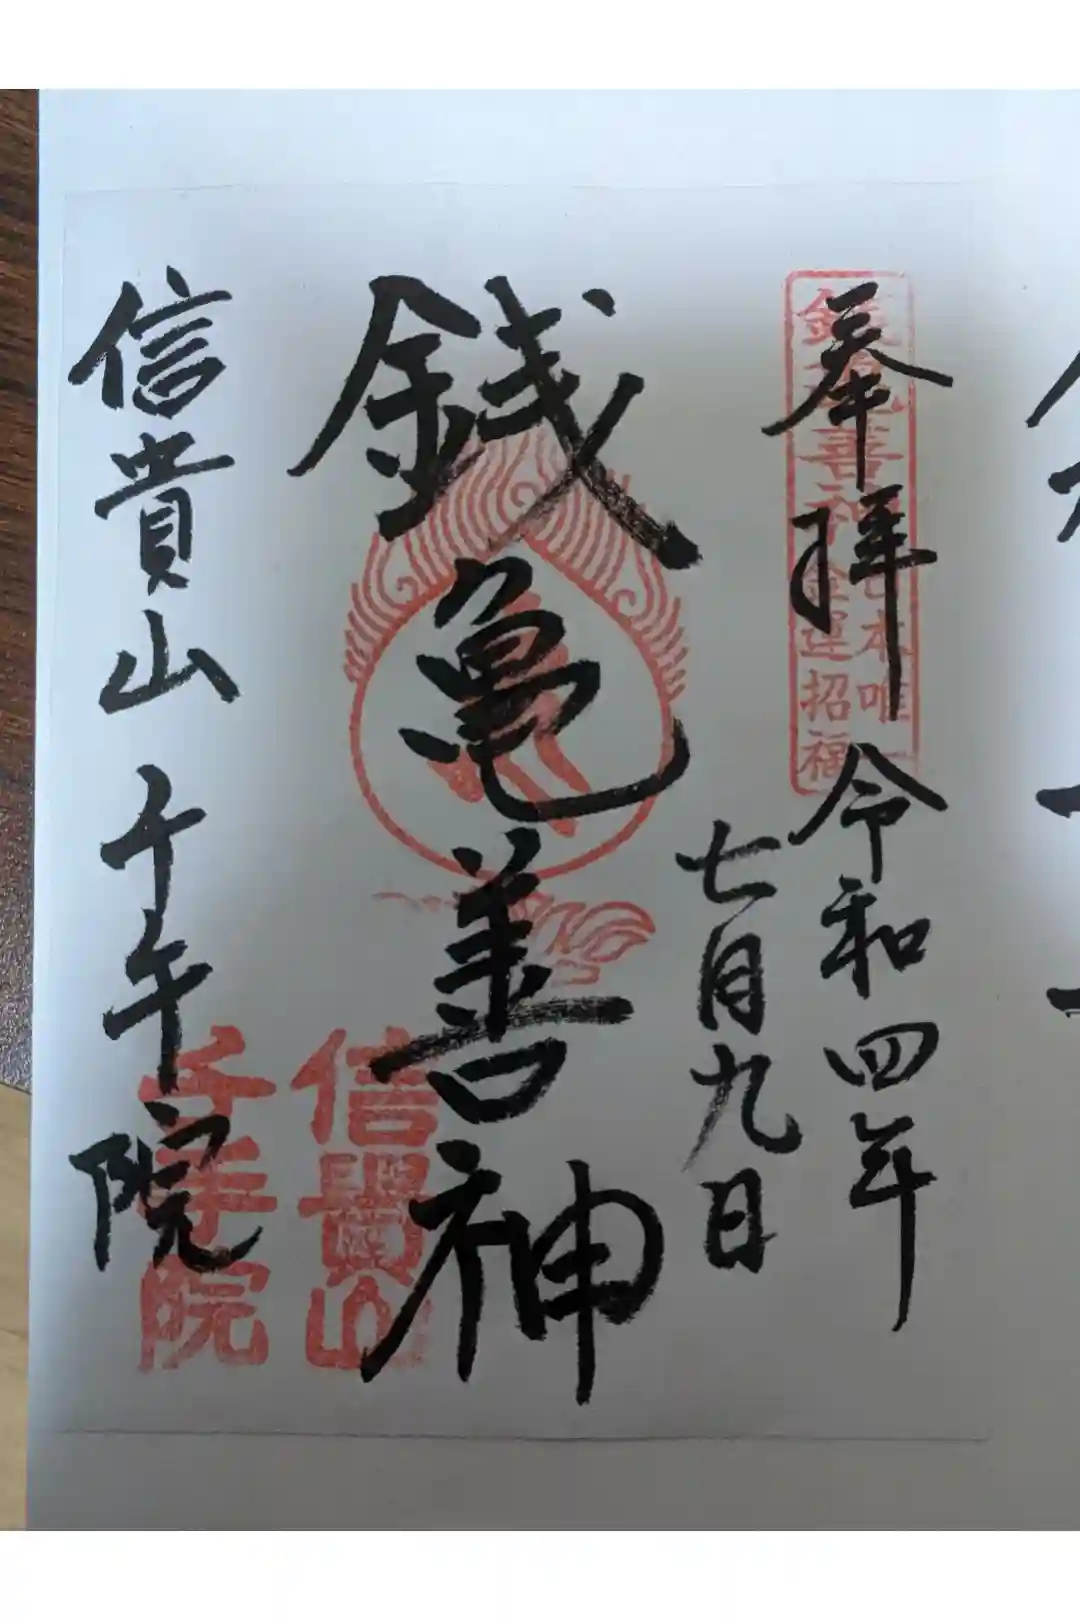 奉拝 令和四年
七月九日
銭亀善神
信貴山 千手院
日本唯一
銭亀善神 金運招福
信貴山
千手院